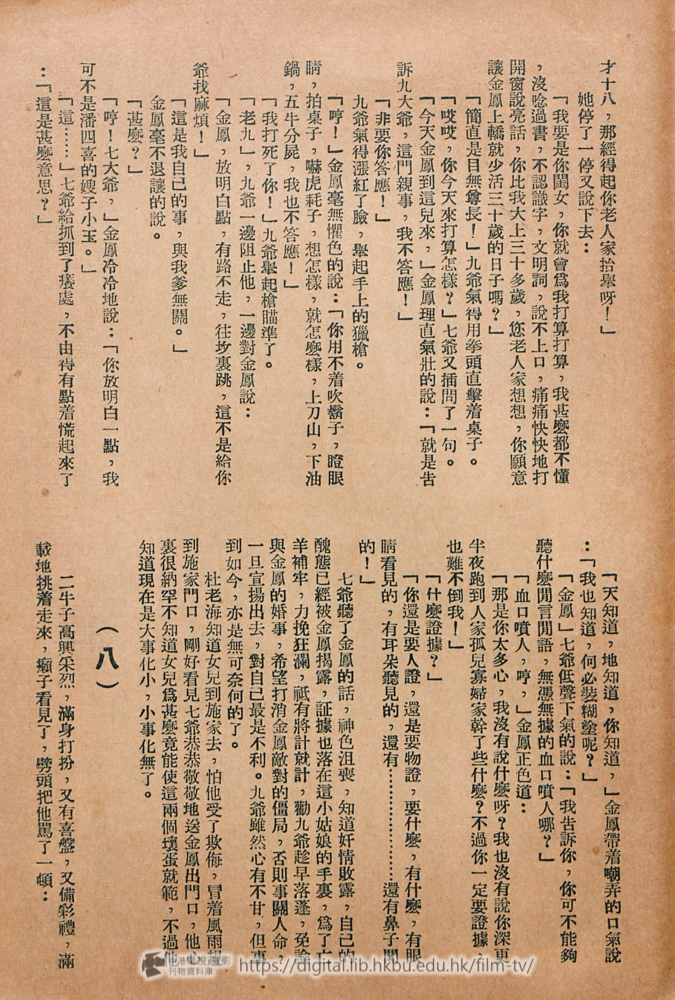 才十八，那經得起你老人家抬舉呀！」
她停了一停又說下去：
「我要是你閨女，你就會爲我打算打算，我甚麼都不懂
，沒唸過書，不認識字，文明詞，說不上口，痛痛快快地打
開窗說亮話，你比我大上三十多歲，您老人家想想，你願意
讓金鳳上轎就少活三十歲的日子嗎？」
「簡直是目無尊長！」九爺氣得用拳頭直擊着桌子。
「哎哎，你今天來打算怎樣？」七爺又插問了一句。
「今天金鳳到這兒來，」金鳳理直氣壯的說：「就是告
訴九大爺，這門親事，我不答應！」
「非要你答應！」
九爺氣得漲紅了臉，舉起手上的獵槍。
「哼！」金鳳毫無懼色的說：「你用不着吹鬍子，瞪眼
睛，拍桌子，嚇虎耗子，想怎樣，就怎麼樣，上刀山，下油
鍋，五牛分屍，我也不答應！」
「我打死了你！」九爺舉起槍瞄準了。
「老九」，九爺一邊阻止他，一邊對金鳳說：
「金鳳，放明白點，有路不走，往坎裏跳，這不是給你
爺找麻煩！」
「這是我自己的事，與我爹無關。」
金鳳毫不退讓的說。
「甚麼？」
「哼！七大爺，」金鳳冷冷地說：「你放明白一點，我
可不是潘四喜的嫂子小玉。」
「這……」七爺給抓到了癢處，不由得有點着慌起來了
：「這是甚麼意思？」
「天知道，地知道，你知道，」金鳳帶着嘲弄的口氣說
：「我也知道，何必裝糊塗呢？」
「金鳳」七爺低聲下氣的說：「我告訴你，你可不能夠
聽什麼閒言閒語，無憑無據的血口噴人哪？」
「血口噴人，哼，」金鳳正色道：
「那是你太多心，我沒有說什麼呀？我也沒有說你深更
半夜跑到人家孤兒寡婦家幹了些什麼？不過你一定要證據，
也難不倒我！」
「什麼證據？」
「你還是要人證，還是要物證，要什麼，有什麼，有眼
睛看見的，有耳朶聽見的，還有…………………還有鼻子聞
的！」
七爺聽了金鳳的話，神色沮喪，知道奸情敗露，自己的
醜態已經被金鳳揭露，証據也落在這小姑娘的手裏，爲了亡
羊補牢，力挽狂瀾，祇有將計就計，勸九爺趁早落蓬，免論
與金鳳的婚事，希望打消金鳳敵對的僵局，否則事關人命，
一旦宣揚出去，對自己最是不利。九爺雖然心有不甘，但事
到如今，亦是無可奈何的了。
杜老海知道女兒到施家去，怕他受了欺侮，冒着風雨
到施家門口，剛好看見七爺恭恭敬敬地送金鳳出門口，他
裏很納罕不知道女兒爲甚麼竟能使這兩個壞蛋就範，不過他
知道現在是大事化小，小事化無了。
（八）
二牛子高興采烈，滿身打扮，又有喜盤，又備彩禮，滿
載地挑着走來，癩子看見了，劈頭把他罵了一頓：
香港電視電影
刊物資料庫
https://digital.lib.hkbu.edu.hk/film-tv/